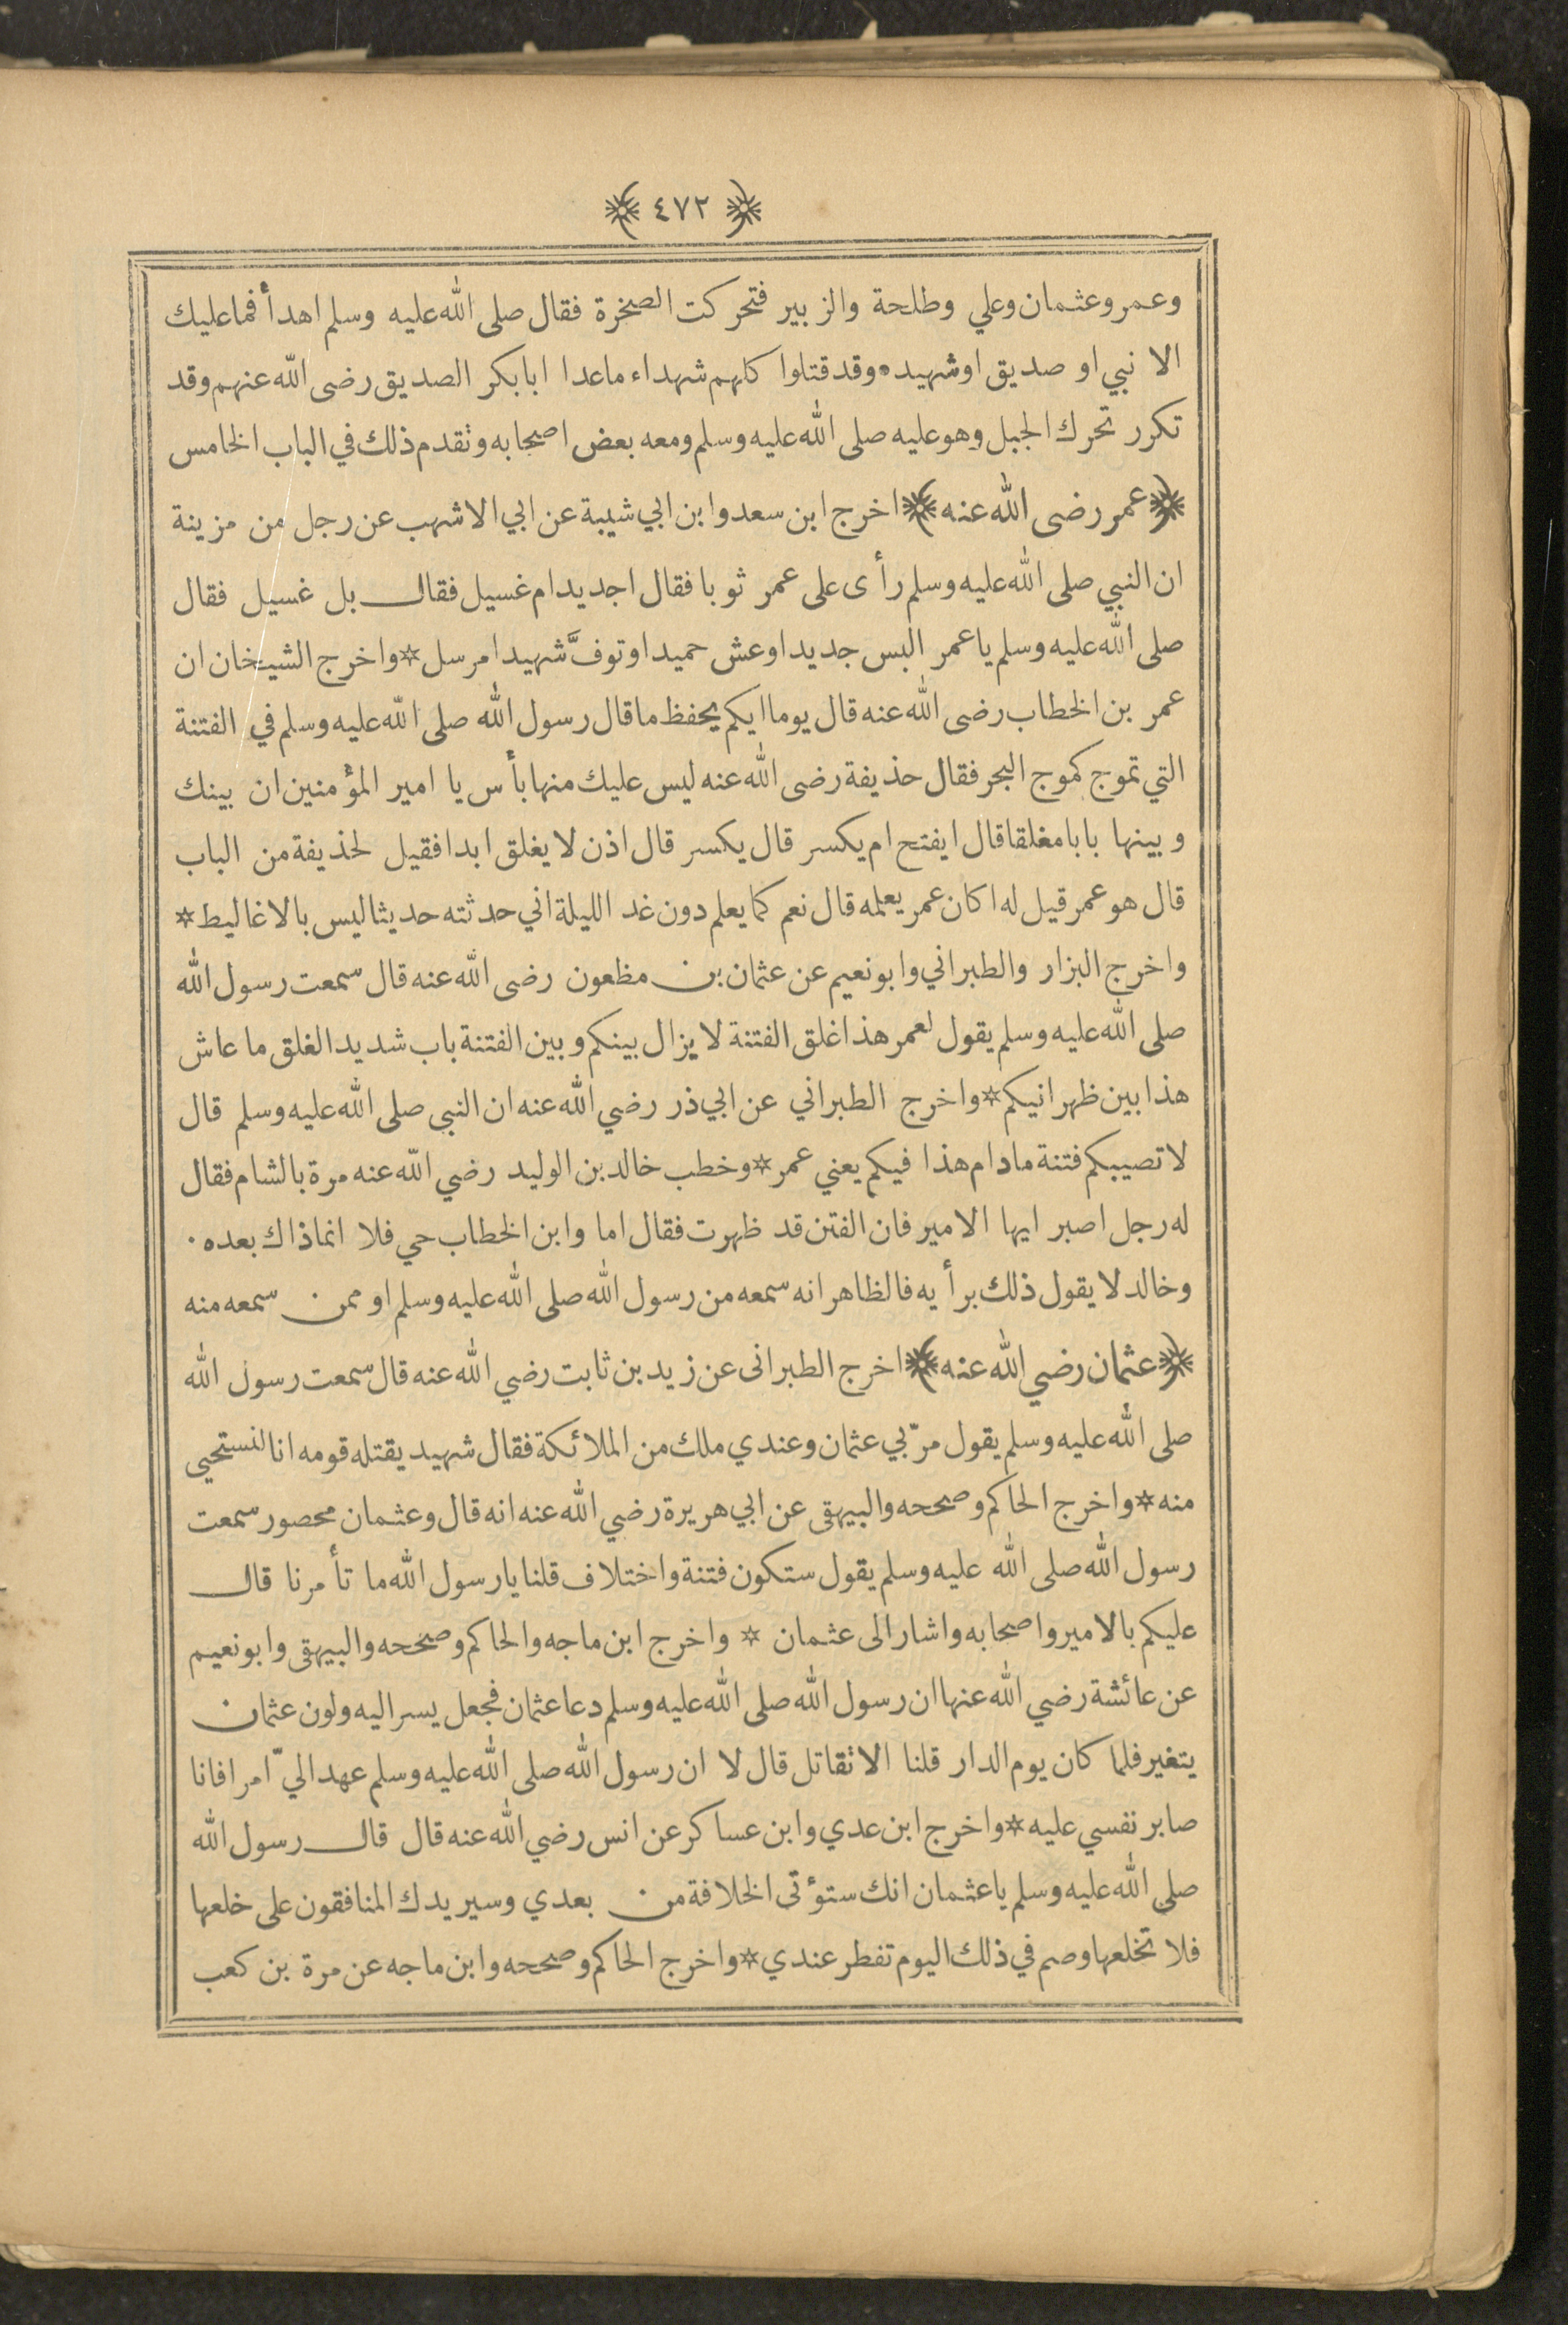 ﴿ ٤٧٢ ﴾
وعمر وعثمان وعلي وطلحة والزبير فتحركت الصخرة فقال صلى الله عليه وسلم اهدأ فما عليك
الا نبي او صديق او شهيد ٠ وقد قتلوا كلهم شهداء ما عدا ابا بكر الصديق رضى الله عنهم وقد
تكرر تحرك الجبل وهو عليه صلى الله عليه وسلم ومعه بعض اصحابه وتقدم ذلك في الباب الخامس
﴿عمر رضى الله عنه﴾ اخرج ابن سعد وابن ابي شيبة عن ابي الاشهب عن رجل من مزينة
ان النبي صلى الله عليه وسلم رأى على عمر ثوبا فقال اجديد ام غسيل فقال بل غسيل فقال
صلى الله عليه وسلم يا عمر البس جديدا وعش حميدا وتوفَّ شهيدا مرسل * واخرج الشيخان ان
عمر بن الخطاب رضى الله عنه قال يوما ايكم يحفظ ما قال رسول الله صلى الله عليه وسلم في الفتنة
التي تموج كموج البحر فقال حذيفة رضى الله عنه ليس عليك منها بأس يا امير المؤمنين ان بينك
وبينها بابا مغلقا قال ايفتح ام يكسر قال يكسر قال اذن لا يغلق ابدا فقيل لحذيفة من الباب
قال هو عمر قيل له اكان عمر يعلمه قال نعم كما يعلم دون غد الليلة اني حدثته حديثا ليس بالاغاليط *
واخرج البزار والطبراني وابو نعيم عن عثمان بن مظعون رضى الله عنه قال سمعت رسول الله
صلى الله عليه وسلم يقول لعمر هذا غلق الفتنة لا يزال بينكم وبين الفتنة باب شديد الغلق ما عاش
هذا بين ظهرانيكم * واخرج الطبراني عن ابي ذر رضي الله عنه ان النبى صلى الله عليه وسلم قال
لا تصيبكم فتنة ما دام هذا فيكم يعني عمر * وخطب خالد بن الوليد رضي الله عنه مرة بالشام فقال
له رجل اصبر ايها الامير فان الفتن قد ظهرت فقال اما وابن الخطاب حي فلا انما ذاك بعده ٠
وخالد لا يقول ذلك برأيه فالظاهر انه سمعه من رسول الله صلى الله عليه وسلم او ممن سمعه منه
﴿عثمان رضي الله عنه﴾ اخرج الطبرانى عن زيد بن ثابت رضي الله عنه قال سمعت رسول الله
صلى الله عليه وسلم يقول مرّ بي عثمان وعندي ملك من الملائكة فقال شهيد يقتله قومه انا لنستحيى
منه * واخرج الحاكم وصححه والبيهقى عن ابي هريرة رضي الله عنه انه قال وعثمان محصور سمعت
رسول الله صلى الله عليه وسلم يقول ستكون فتنة واختلاف قلنا يا رسول الله ما تأمرنا قال
عليكم بالامير واصحابه واشار الى عثمان * واخرج ابن ماجه والحاكم وصححه والبيهقى وابو نعيم
عن عائشة رضي الله عنها ان رسول الله صلى الله عليه وسلم دعا عثمان فجعل يسر اليه ولون عثمان
يتغير فلما كان يوم الدار قلنا الا تقاتل قال لا ان رسول الله صلى الله عليه وسلم عهد اليّ امرا فانا
صابر نفسي عليه * واخرج ابن عدي وابن عساكر عن انس رضي الله عنه قال قال رسول الله
صلى الله عليه وسلم يا عثمان انك ستؤتى الخلافة من بعدي وسيريدك المنافقون على خلعها
فلا تخلعها وصم في ذلك اليوم تفطر عندي * واخرج الحاكم وصححه وابن ماجه عن مرة بن كعب